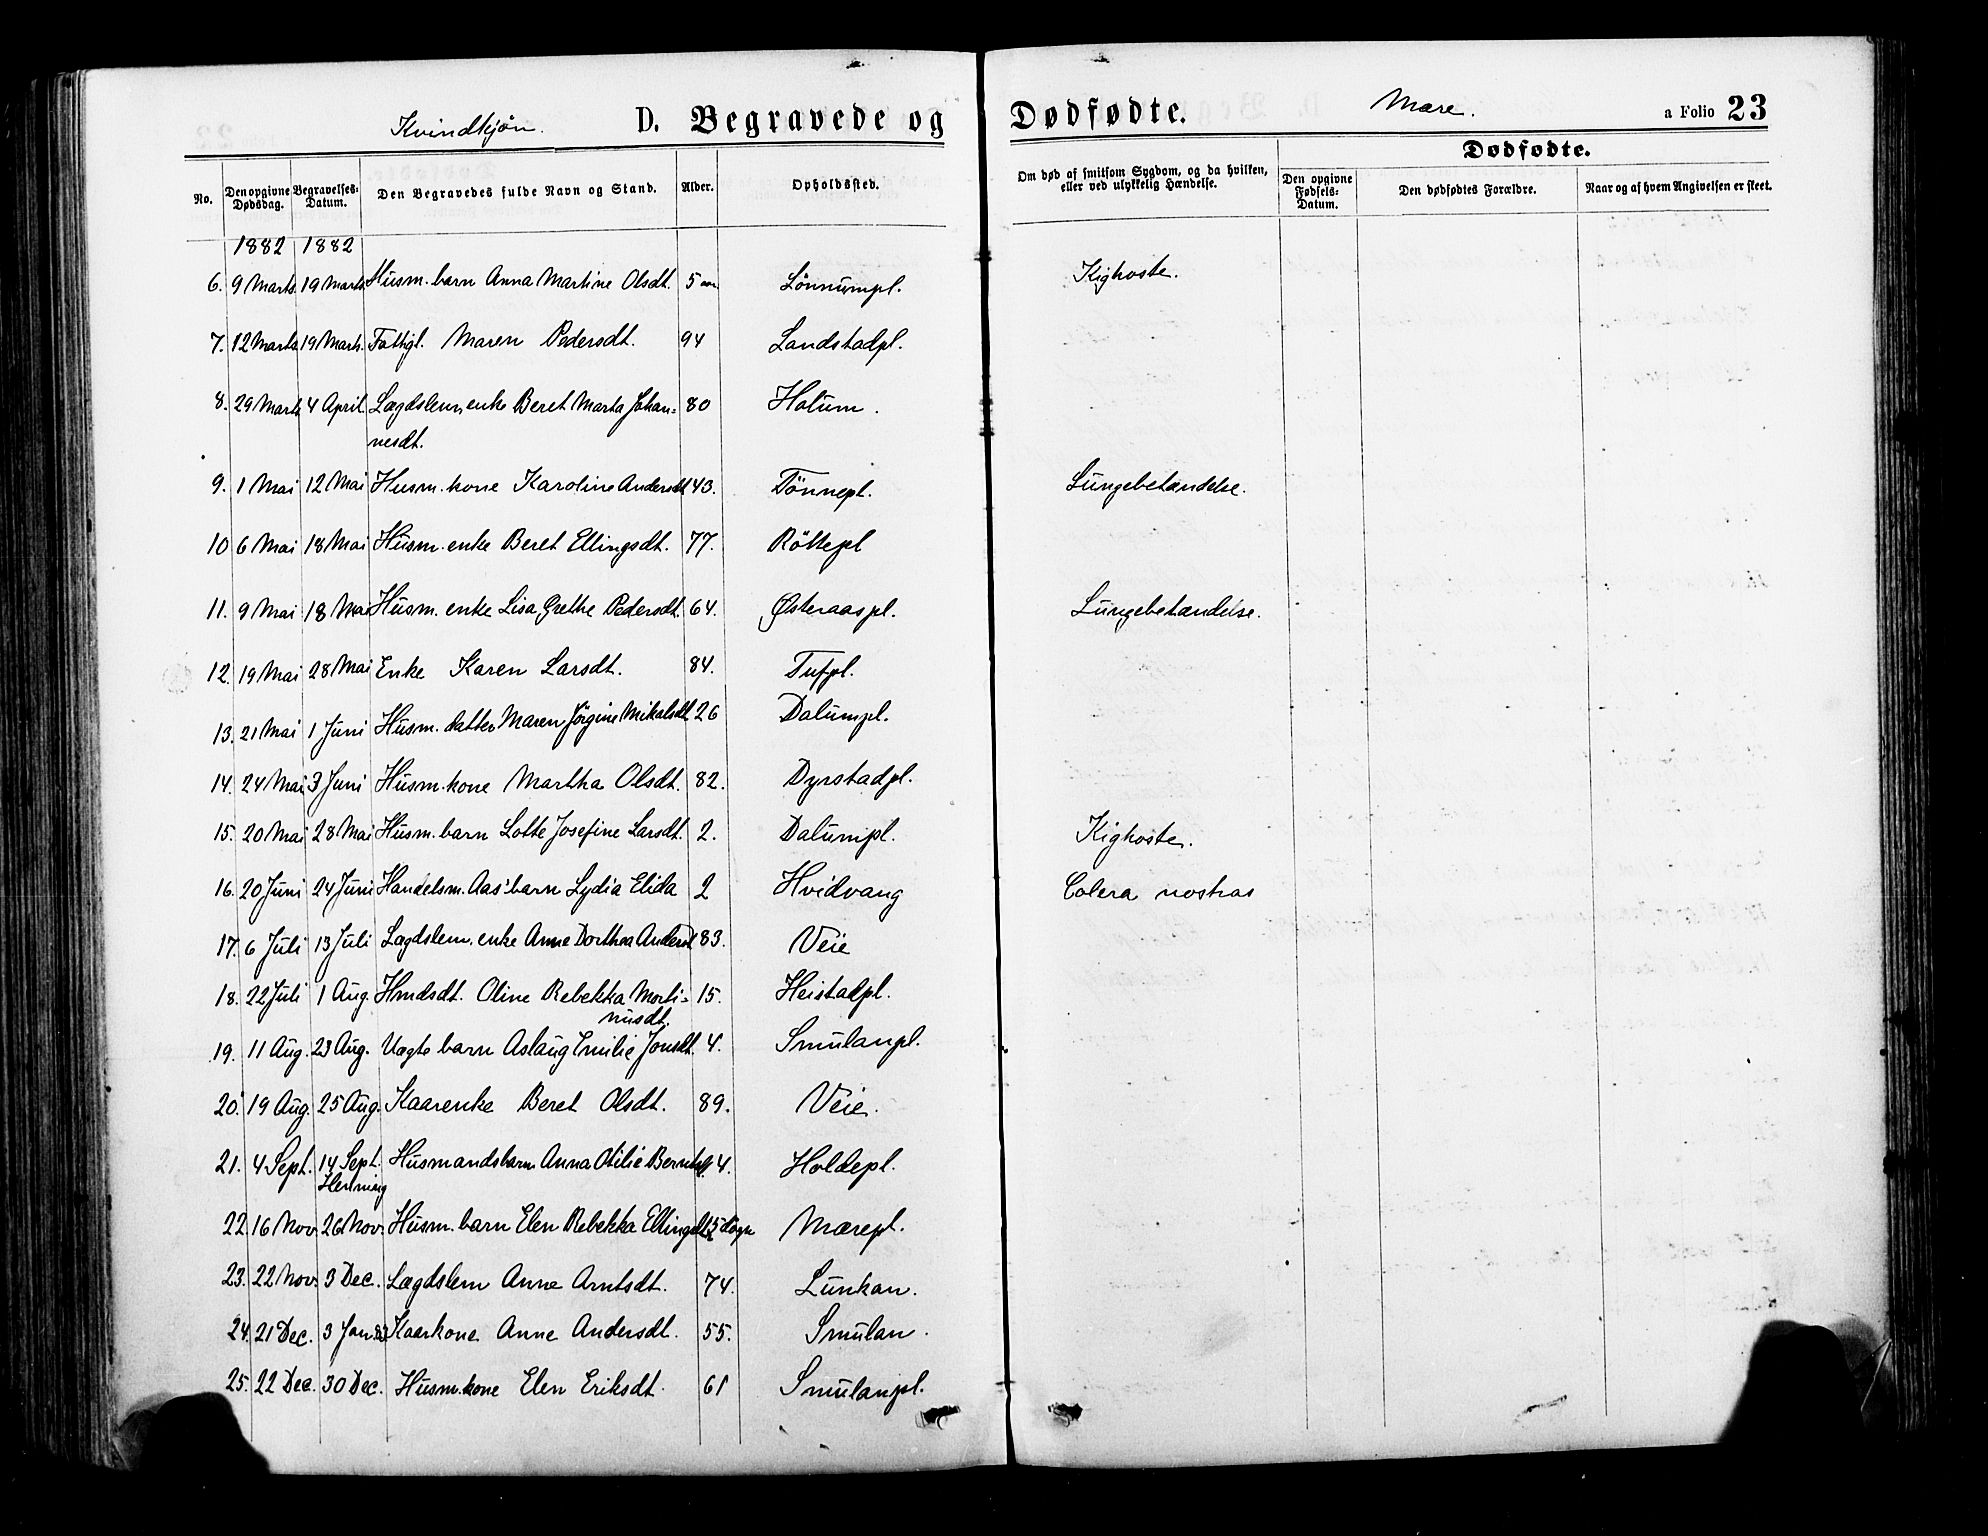 Kvindkjøn. D. Begravede og Dødfødte. Mære. a Folio 23
No. Den opgivne Dødsdag. Begravelses-Datum. Den Begravedes fulde Navn og Stand. Alder. Opholdssted. Om død af smitsom Sygdom, og da hvilken, eller ved ulykkelig Hændelse. Dødfødte. Den opgivne Fødsels-Datum. Den dødfødtes Forældre. Naar og af hvem Angivelsen er skeet.
1882 1882
6. 9 Marts 19 Marts Husm. barn Anna Martine Olsdt. 5 aar Lönnumpl. Kighoste.
7. 12 Marts 19 Marts. Fattigl. Maren Pedersdt. 94 Landstadpl.
8. 29 Marts 4 April. Lægdslem, enke Beret Marta Johan= 80 Halum.
nesdt.
9. 1 Mai 12 Mai Husm. kone Karoline Andersdt 43. Tönnepl. Lungebetændelse.
10 6 Mai 18 Mai Husm. enke Beret Ellingsdt. 77. Röttepl
11. 9 Mai 18 Mai Husm. enke Lisa Grethe Pedersdt. 64. Østeraaspl. Lungebetændelse.
12. 19 Mai 28 Mai Enke Karen Larsdt. 84. Tufpl.
13. 21 Mai 1 Juni Husm. datter Maren Jörgine Mikalsdt 26 Dalumpl.
14. 24 Mai 3 Juni Husm. kone Martha Olsdt. 82. Dyrstadpl.
15. 20 Mai 28 Mai Husm. barn Lotte Josefine Larsdt. 2. Dalumpl. Kighoste.
16. 20 Juni 24 Juni Handelsm. Aas' barn Lydia Elida 2 Hvidvang Colera nostras
17. 6 Juli 13 Juli Lægdslem. enke Anne Dorthea Andersdt 83. Veie
18. 22 Juli 1 Aug. Hmdsdt. Oline Rebekka Morti= 15. Heistadpl.
nusdt.
19. 11 Aug. 23 Aug. Uægte barn Aslaug Emilie Jonsdt. 4. Smulanpl.
20. 19 Aug. 25 Aug. Kaarenke Beret Olsdt. 89. Veie.
21. 4 Sept. 14 Sept. Husmandsbarn Anna Otilie 4. Holdepl.
Henning
22. 16 Nov. 26 Nov. Husm. barn Elen Rebekka Ellingsdt. 5 dage Mærepl.
23. 22 Nov. 3 Dec. Lægdslem Anne Arntsdt. 74. Lunkan.
24. 21 Dec. 3 Jan. 83 Kaarkone Anne Andersdt. 55. Smulan.
25. 22 Dec. 30 Dec. Husm. kone Elen Eriksdt. 61 Smulanpl.